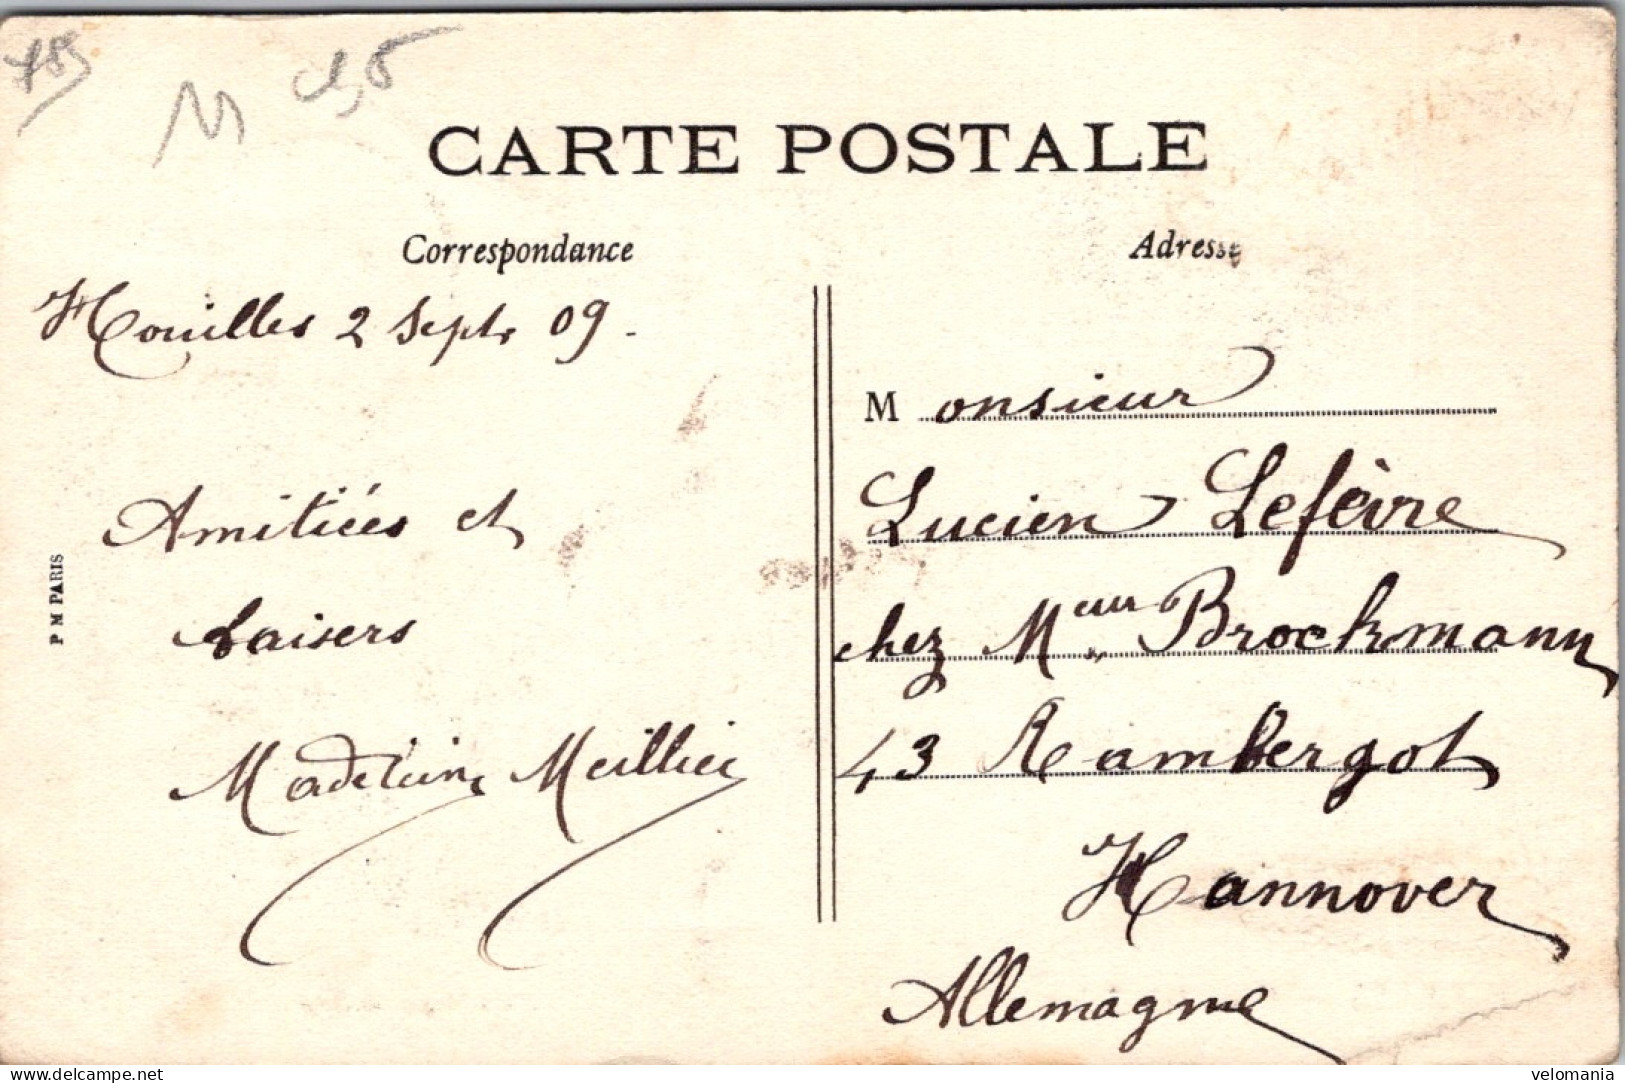 785
M
CARTE POSTALE
Correspondance
Adresse
Houilles 2 Sept 09.
Amitiées et
baisers
Madeleine Meillier
P M PARIS
Monsieur
Lucien Lefèvre
chez Meur Brockmann
43 Rambergst
Hannover
Allemagne
www.delcampe.net
velomania